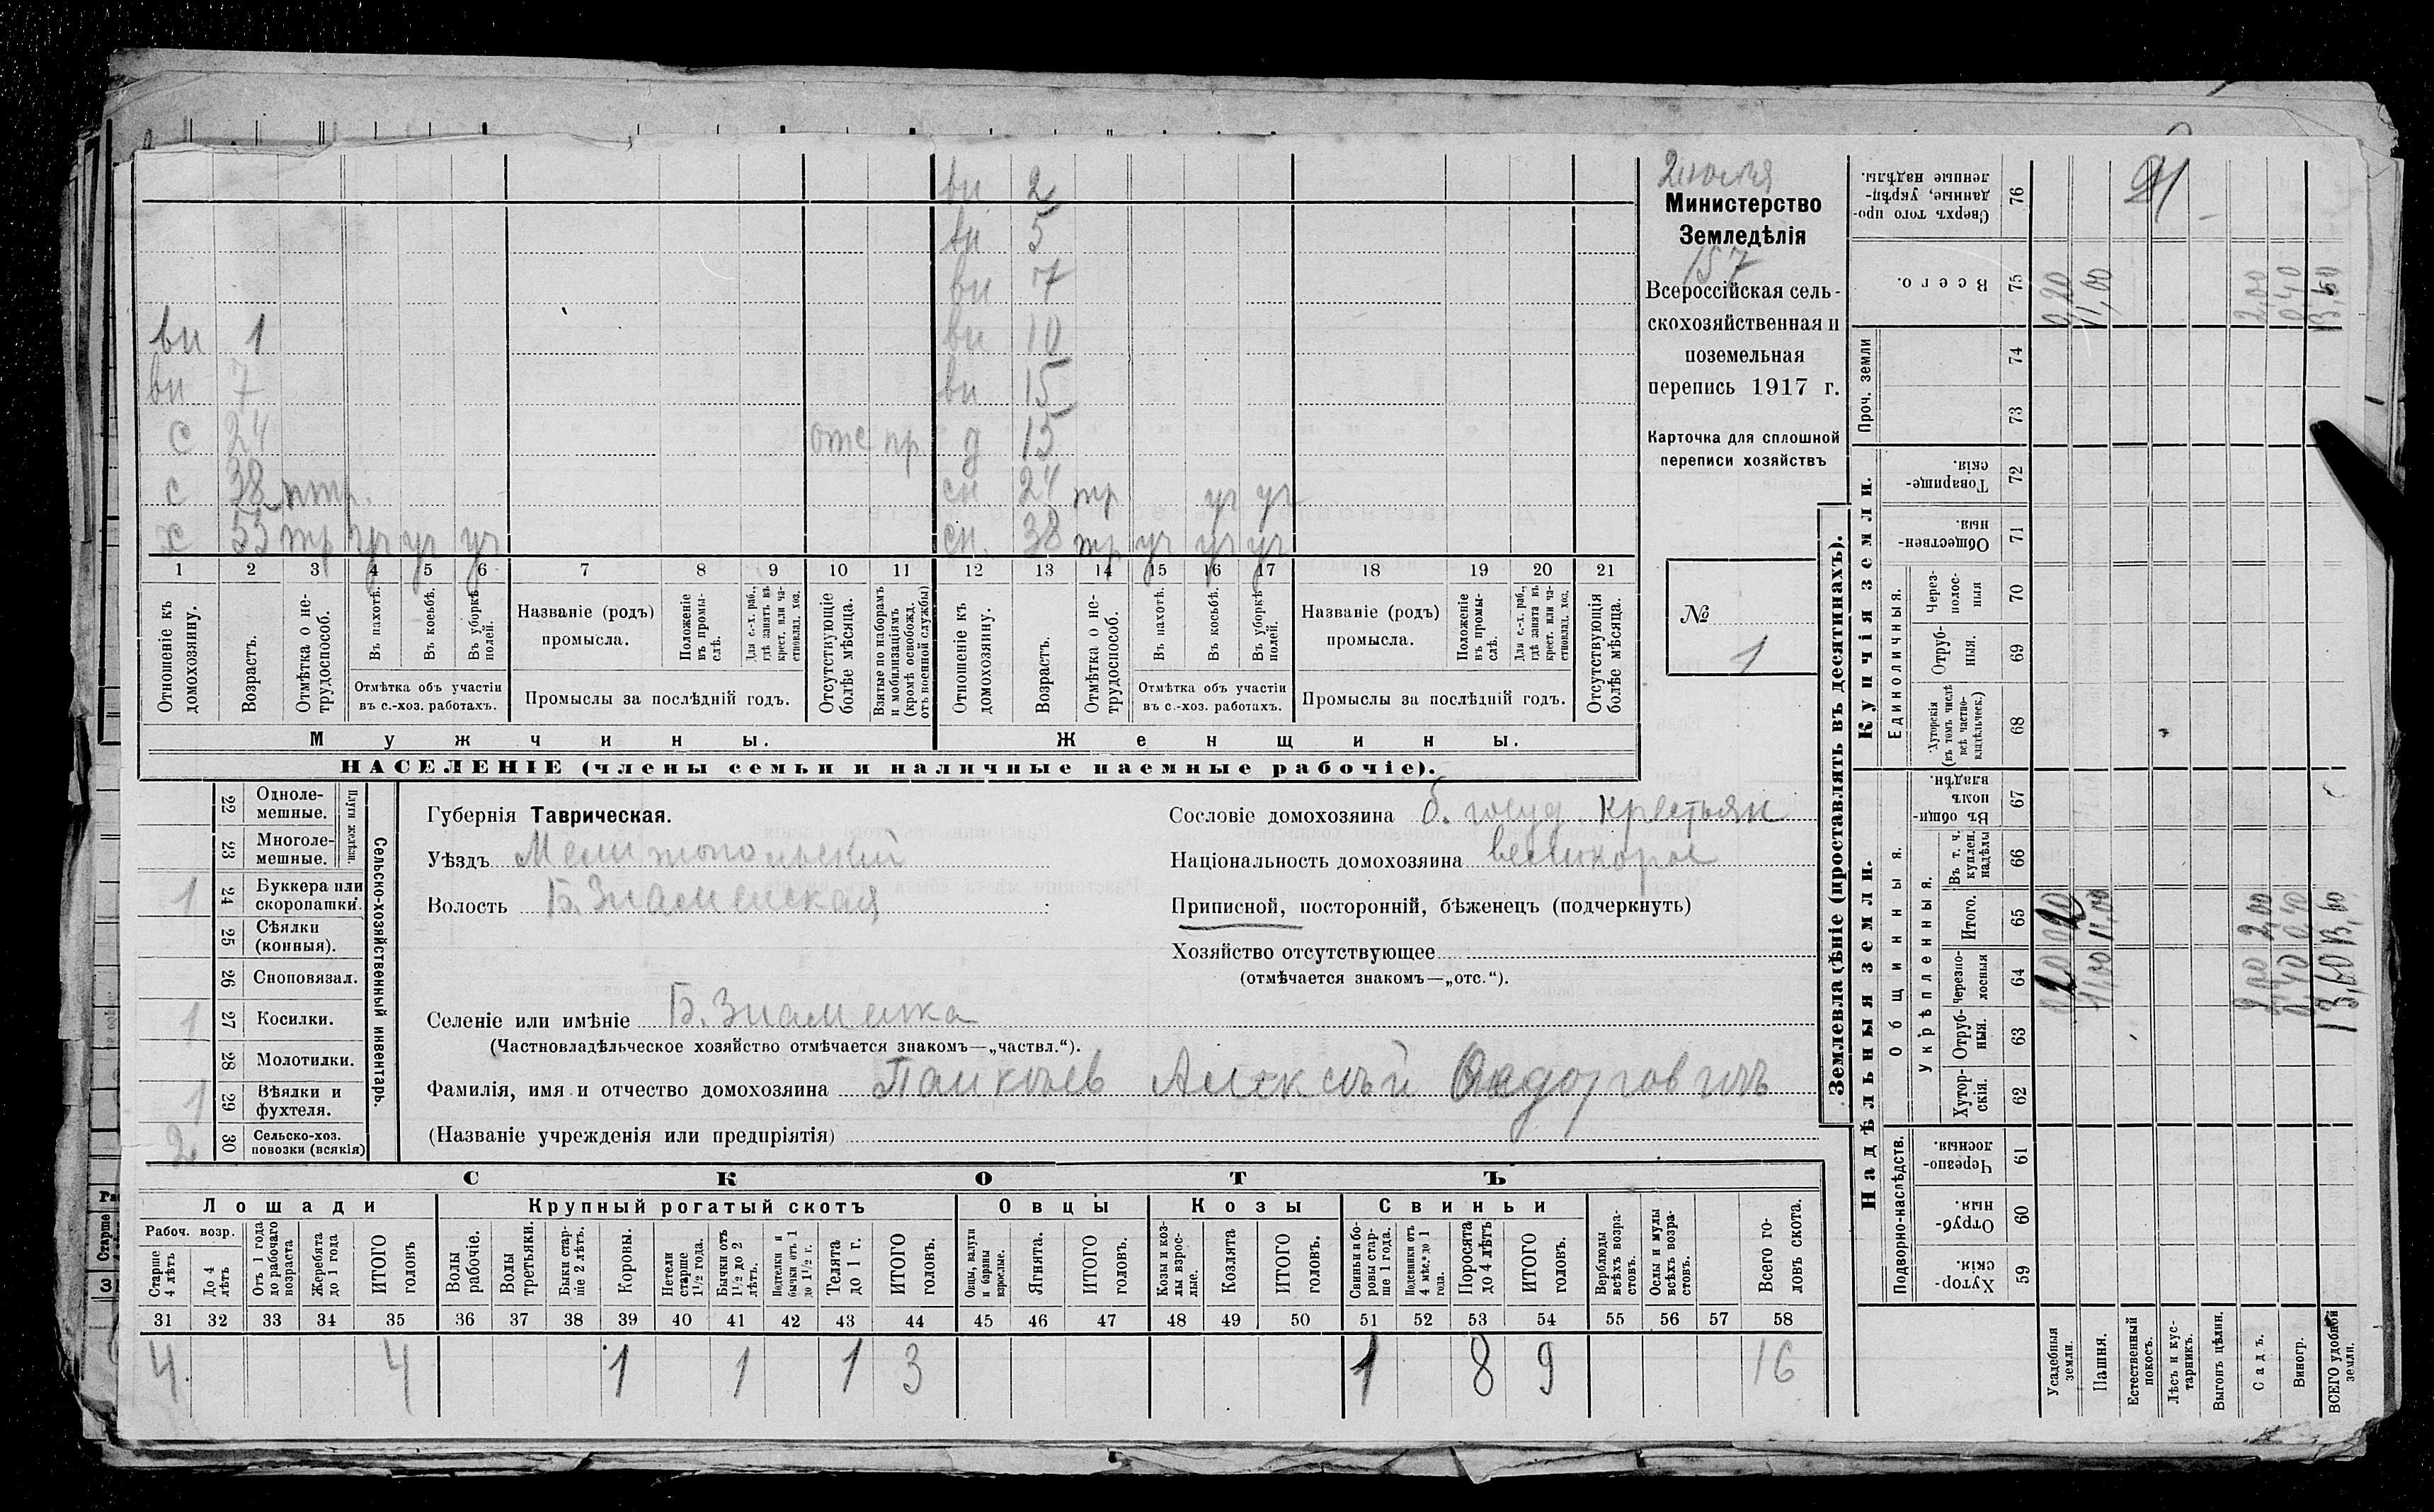 2 июля
Министерство
Земледѣлія
157
Всероссійская сель-
скохозяйственная и
поземельная
перепись 1917 г.
Карточка для сплошной
переписи хозяйствъ
№
1
вн 2
вн 5
вн 7
вн 1 вн 10
вн 7 вн 15
с 24 отс пр д 15
с 38 птр. сн 24 тр уч уч
х 55 тр уч уч уч сн. 38 тр уч уч уч
1 2 3 4 5 6 7 8 9 10 11 12 13 14 15 16 17 18 19 20 21
Отношеніе къ домохозяину.
Возрастъ.
Отмѣтка о не-трудоспособ.
Въ пахотѣ.
Въ косьбѣ.
Въ уборкѣ полей.
Отмѣтка объ участіи
въ с.-хоз. работахъ.
Названіе (родъ)
промысла.
Положеніе въ промы-слѣ.
Для с.-х. раб., гдѣ занятъ въ крест. или ча-стновлад. хоз.
Промыслы за послѣдній годъ.
Отсутствующіе болѣе мѣсяца.
Взятые по наборамъ и мобилизаціямъ (кромѣ освобожд. отъ военной службы)
Отношеніе къ домохозяину.
Возрастъ.
Отмѣтка о не-трудоспособ.
Въ пахотѣ.
Въ косьбѣ.
Въ уборкѣ полей.
Отмѣтка объ участіи
въ с.-хоз. работахъ.
Названіе (родъ)
промысла.
Положеніе въ промы-слѣ.
Для с.-х. раб., гдѣ занята въ крест. или ча-стновлад. хоз.
Промыслы за послѣдній годъ.
Отсутствующія болѣе мѣсяца.
Мужчины. Женщины.
НАСЕЛЕНІЕ (члены семьи и наличные наемные рабочіе).
Сельско-хозяйственный инвентарь.
Плуги желѣзн.
22 Одноле-мешные.
23 Многоле-мешные.
1 24 Буккера или скоропашки.
25 Сѣялки (конныя).
26 Сноповязал.
1 27 Косилки.
28 Молотилки.
1 29 Вѣялки и фухтеля.
2 30 Сельско-хоз. повозки (всякія)
Губернія Таврическая.
Уѣздъ Мелитопольскій
Волость Б. Знаменская
Сословіе домохозяина б. госуд. крестьян
Національность домохозяина великорос
Приписной, посторонній, бѣженецъ (подчеркнуть)
Хозяйство отсутствующее
(отмѣчается знакомъ—„отс.“).
Селеніе или имѣніе Б. Знаменка
(Частновладѣльческое хозяйство отмѣчается знакомъ—„частвл.“).
Фамилія, имя и отчество домохозяина Панкѣев Алексѣй
(Названіе учрежденія или предпріятія)
СКОТЪ
Лошади Крупный рогатый скотъ Овцы Козы Свиньи
Рабоч. возр.
Старше 4 лѣтъ
До 4 лѣтъ
Отъ 1 года до рабочаго возраста
Жеребята до 1 года
ИТОГО головъ
Волы рабочіе.
Волы третьяки.
Быки стар-ше 2 лѣтъ.
Коровы.
Нетели старше 1½ года.
Бычки отъ 1½ до 2 лѣтъ.
Подтелки и бычки отъ 1 до 1½ г.
Телята до 1 г.
ИТОГО головъ.
Овцы, валухи и бараны взрослые.
Ягнята.
ИТОГО головъ.
Козы и коз-лы взрос-лые.
Козлята
ИТОГО головъ.
Свиньи и бо-ровы стар-ше 1 года.
Подсвинки отъ 4 мѣс. до 1 года.
Поросята до 4 лѣтъ
ИТОГО головъ.
Верблюды всѣхъ возра-стовъ.
Ослы и мулы всѣхъ возра-стовъ.
Всего го-ловъ скота.
31 32 33 34 35 36 37 38 39 40 41 42 43 44 45 46 47 48 49 50 51 52 53 54 55 56 57 58
4 4 1 1 1 3 1 8 9 16
Землевладѣніе (проставлять въ десятинахъ).
Надѣльныя земли. Купчія земли. Проч. земли
Подворно-наслѣдств.
Общинныя.
Укрѣпленныя.
Единоличныя.
59 Хутор-скія.
60 Отруб-ныя.
61 Черезпо-лосныя.
62 Хутор-скія.
63 Отруб-ныя.
64 Черезпо-лосныя
65 Итого.
66 Въ т. ч. куплен. надѣлы
67 Въ общи-номъ владѣн.
68 Хуторскія (въ томъ числѣ всѣ частно-владѣльческ.)
69 Отруб-ныя.
70 Через-полос-ныя
71 Обществен-ныя.
72 Товарище-скія.
73
74
75 Всего.
76 Сверхъ того про-данные, укрѣп-ленные надѣлы.
Усадебныя земли. 0,20
Пашня. 11,00 11,00 11,00
Естественный покосъ.
Лѣсъ и кус-тарникъ.
Выгонъ цѣлин.
Садъ. 2,00 2,00 2,00
Виногр. 0,40 0,40 0,40
ВСЕГО удобной земли. 13,60 13,60 13,60